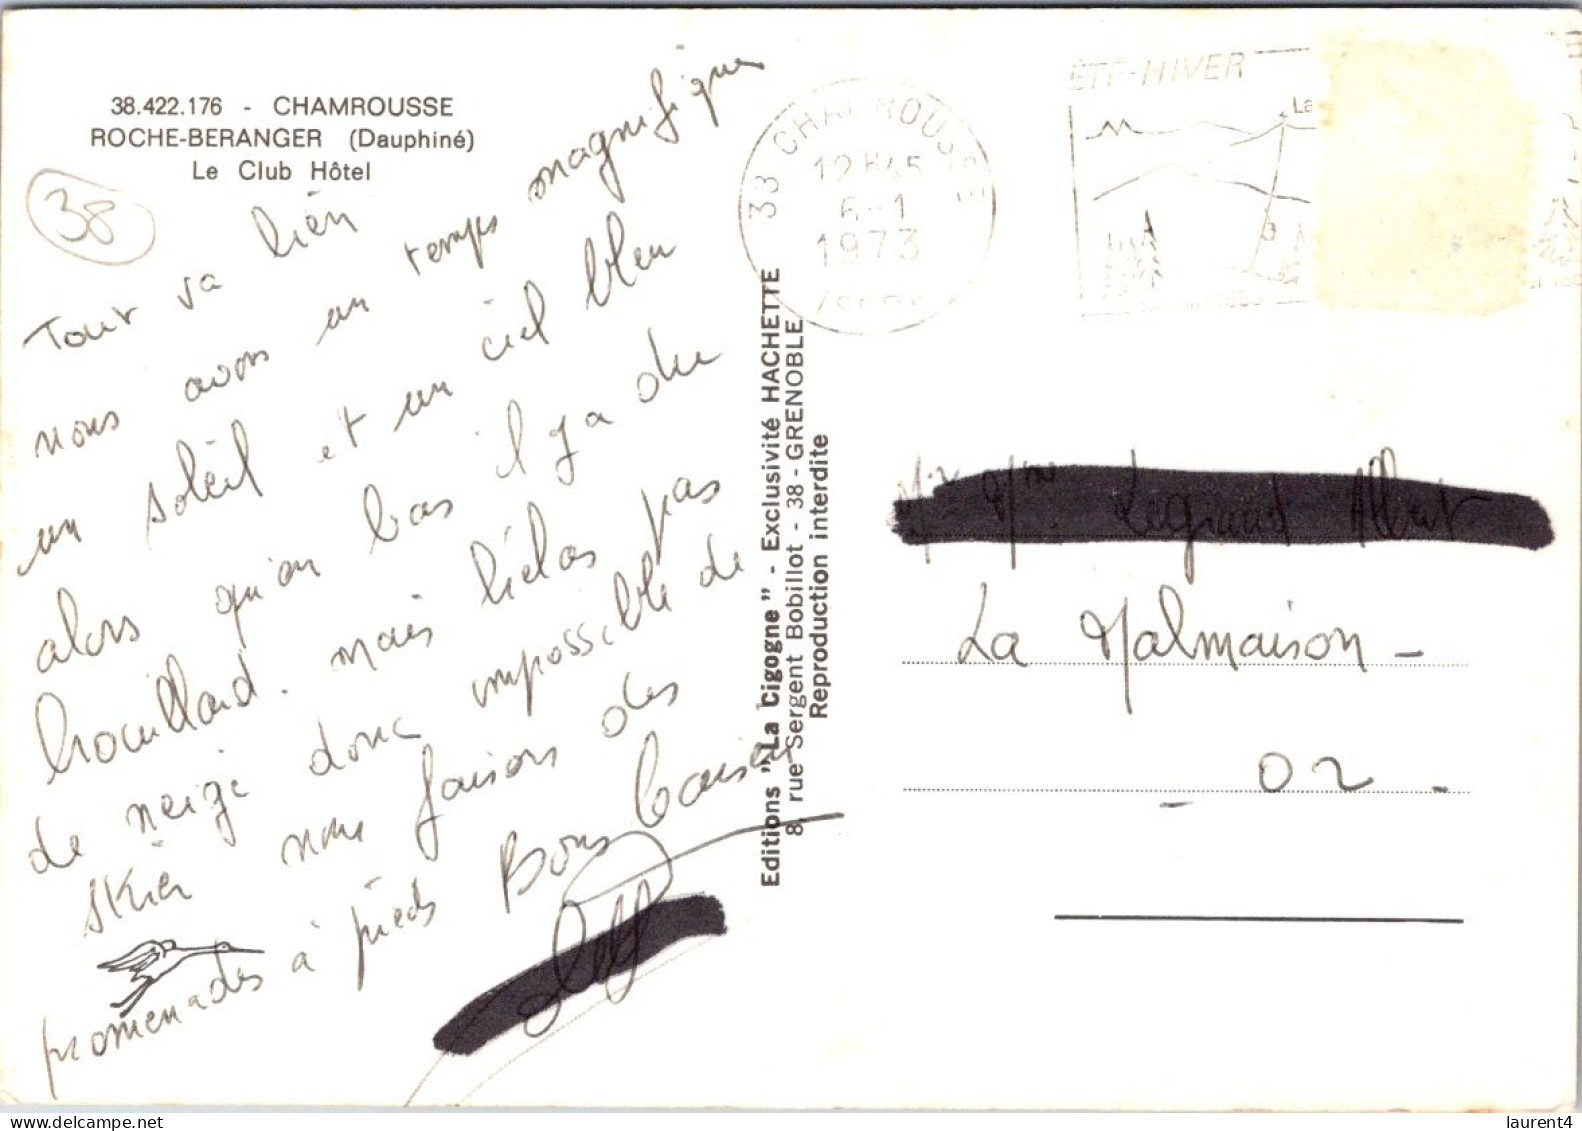 38.422.176 - CHAMROUSSE
ROCHE-BERANGER (Dauphiné)
Le Club Hôtel
38
Tout va bien
nous avons un temps magnifique
un soleil et un ciel bleu
alors qu'en bas il y a du
brouillard. mais hélas pas
de neige donc impossible de
skier nous faisons des
promenades à pieds Bons baisers
Editions "La Cigogne" - Exclusivité HACHETTE
8, rue Sergent Bobillot - 38 - GRENOBLE
Reproduction interdite
33 CHAMROUSSE
12H45
6-1
1973
ÉTÉ-HIVER
La
Legrand Albert
La Malmaison -
- 02 -
laurent4